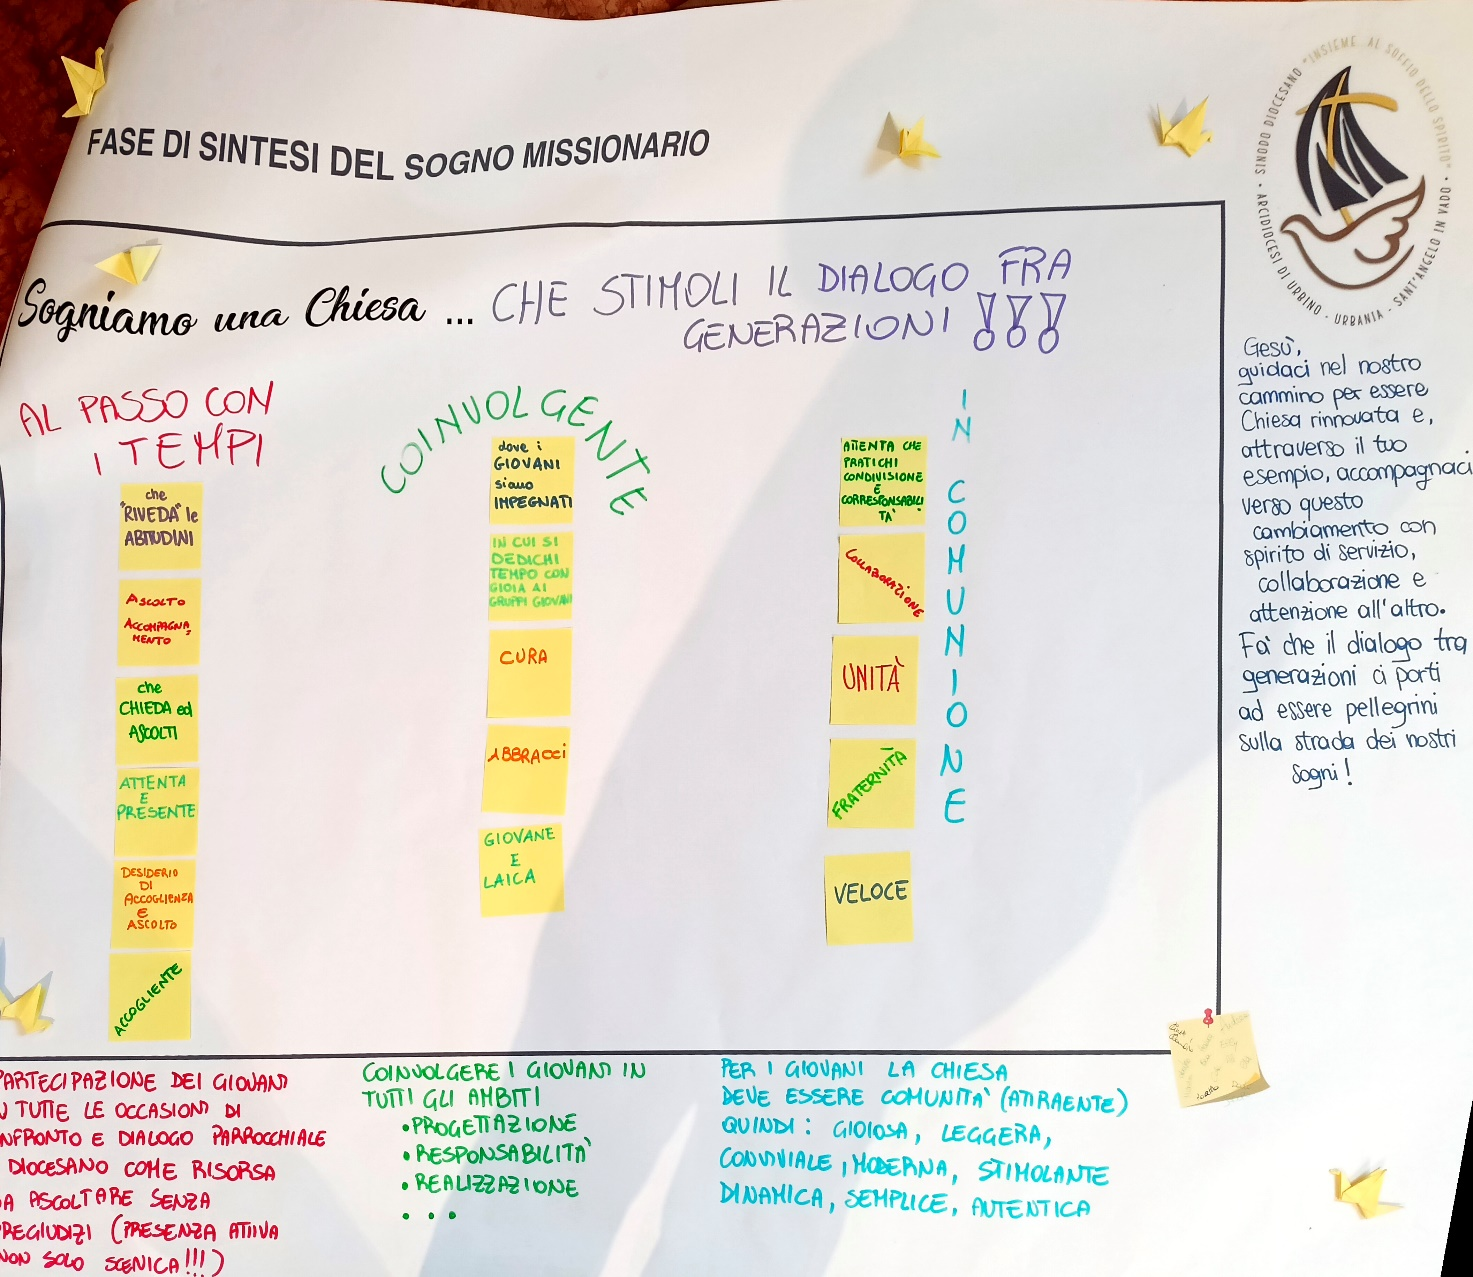 FASE DI SINTESI DEL SOGNO MISSIONARIO
SINODO DIOCESANO "INSIEME AL SOFFIO DELLO SPIRITO"
ARCIDIOCESI DI URBINO - URBANIA - SANT'ANGELO IN VADO
Sogniamo una Chiesa ... CHE STIMOLI IL DIALOGO FRA
GENERAZIONI !!!
AL PASSO CON
I TEMPI
che
"RIVEDA" le
ABITUDINI
ASCOLTO
ACCOMPAGNA,
MENTO
che
CHIEDA ed
ASCOLTI
ATTENTA
E
PRESENTE
DESIDERIO
DI
ACCOGLIENZA
E
ASCOLTO
ACCOGLIENTE
COINVOLGENTE
dove i
GIOVANI
siano
IMPEGNATI
IN CUI SI
DEDICHI
TEMPO CON
GIOIA AI
GRUPPI GIOVANI
CURA
ABBRACCI
GIOVANE
E
LAICA
IN COMUNIONE
ATTENTA CHE
PRATICHI
CONDIVISIONE
E
CORRESPONSABILI
TÀ
COLLABORAZIONE
UNITÀ
FRATERNITÀ
VELOCE
Gesù,
guidaci nel nostro
cammino per essere
Chiesa rinnovata e,
attraverso il tuo
esempio, accompagnaci
verso questo
cambiamento con
spirito di servizio,
collaborazione e
attenzione all'altro.
Fa' che il dialogo tra
generazioni ci porti
ad essere pellegrini
sulla strada dei nostri
sogni!
PARTECIPAZIONE DEI GIOVANI
N TUTTE LE OCCASIONI DI
NFRONTO E DIALOGO PARROCCHIALE
DIOCESANO COME RISORSA
DA ASCOLTARE SENZA
PREGIUDIZI (PRESENZA ATTIVA
NON SOLO SCENICA!!!)
COINVOLGERE I GIOVANI IN
TUTTI GLI AMBITI
• PROGETTAZIONE
• RESPONSABILITÀ
• REALIZZAZIONE
• • •
PER I GIOVANI LA CHIESA
DEVE ESSERE COMUNITA' (ATTRAENTE)
QUINDI: GIOIOSA, LEGGERA,
CONVIVIALE, MODERNA, STIMOLANTE
DINAMICA, SEMPLICE, AUTENTICA